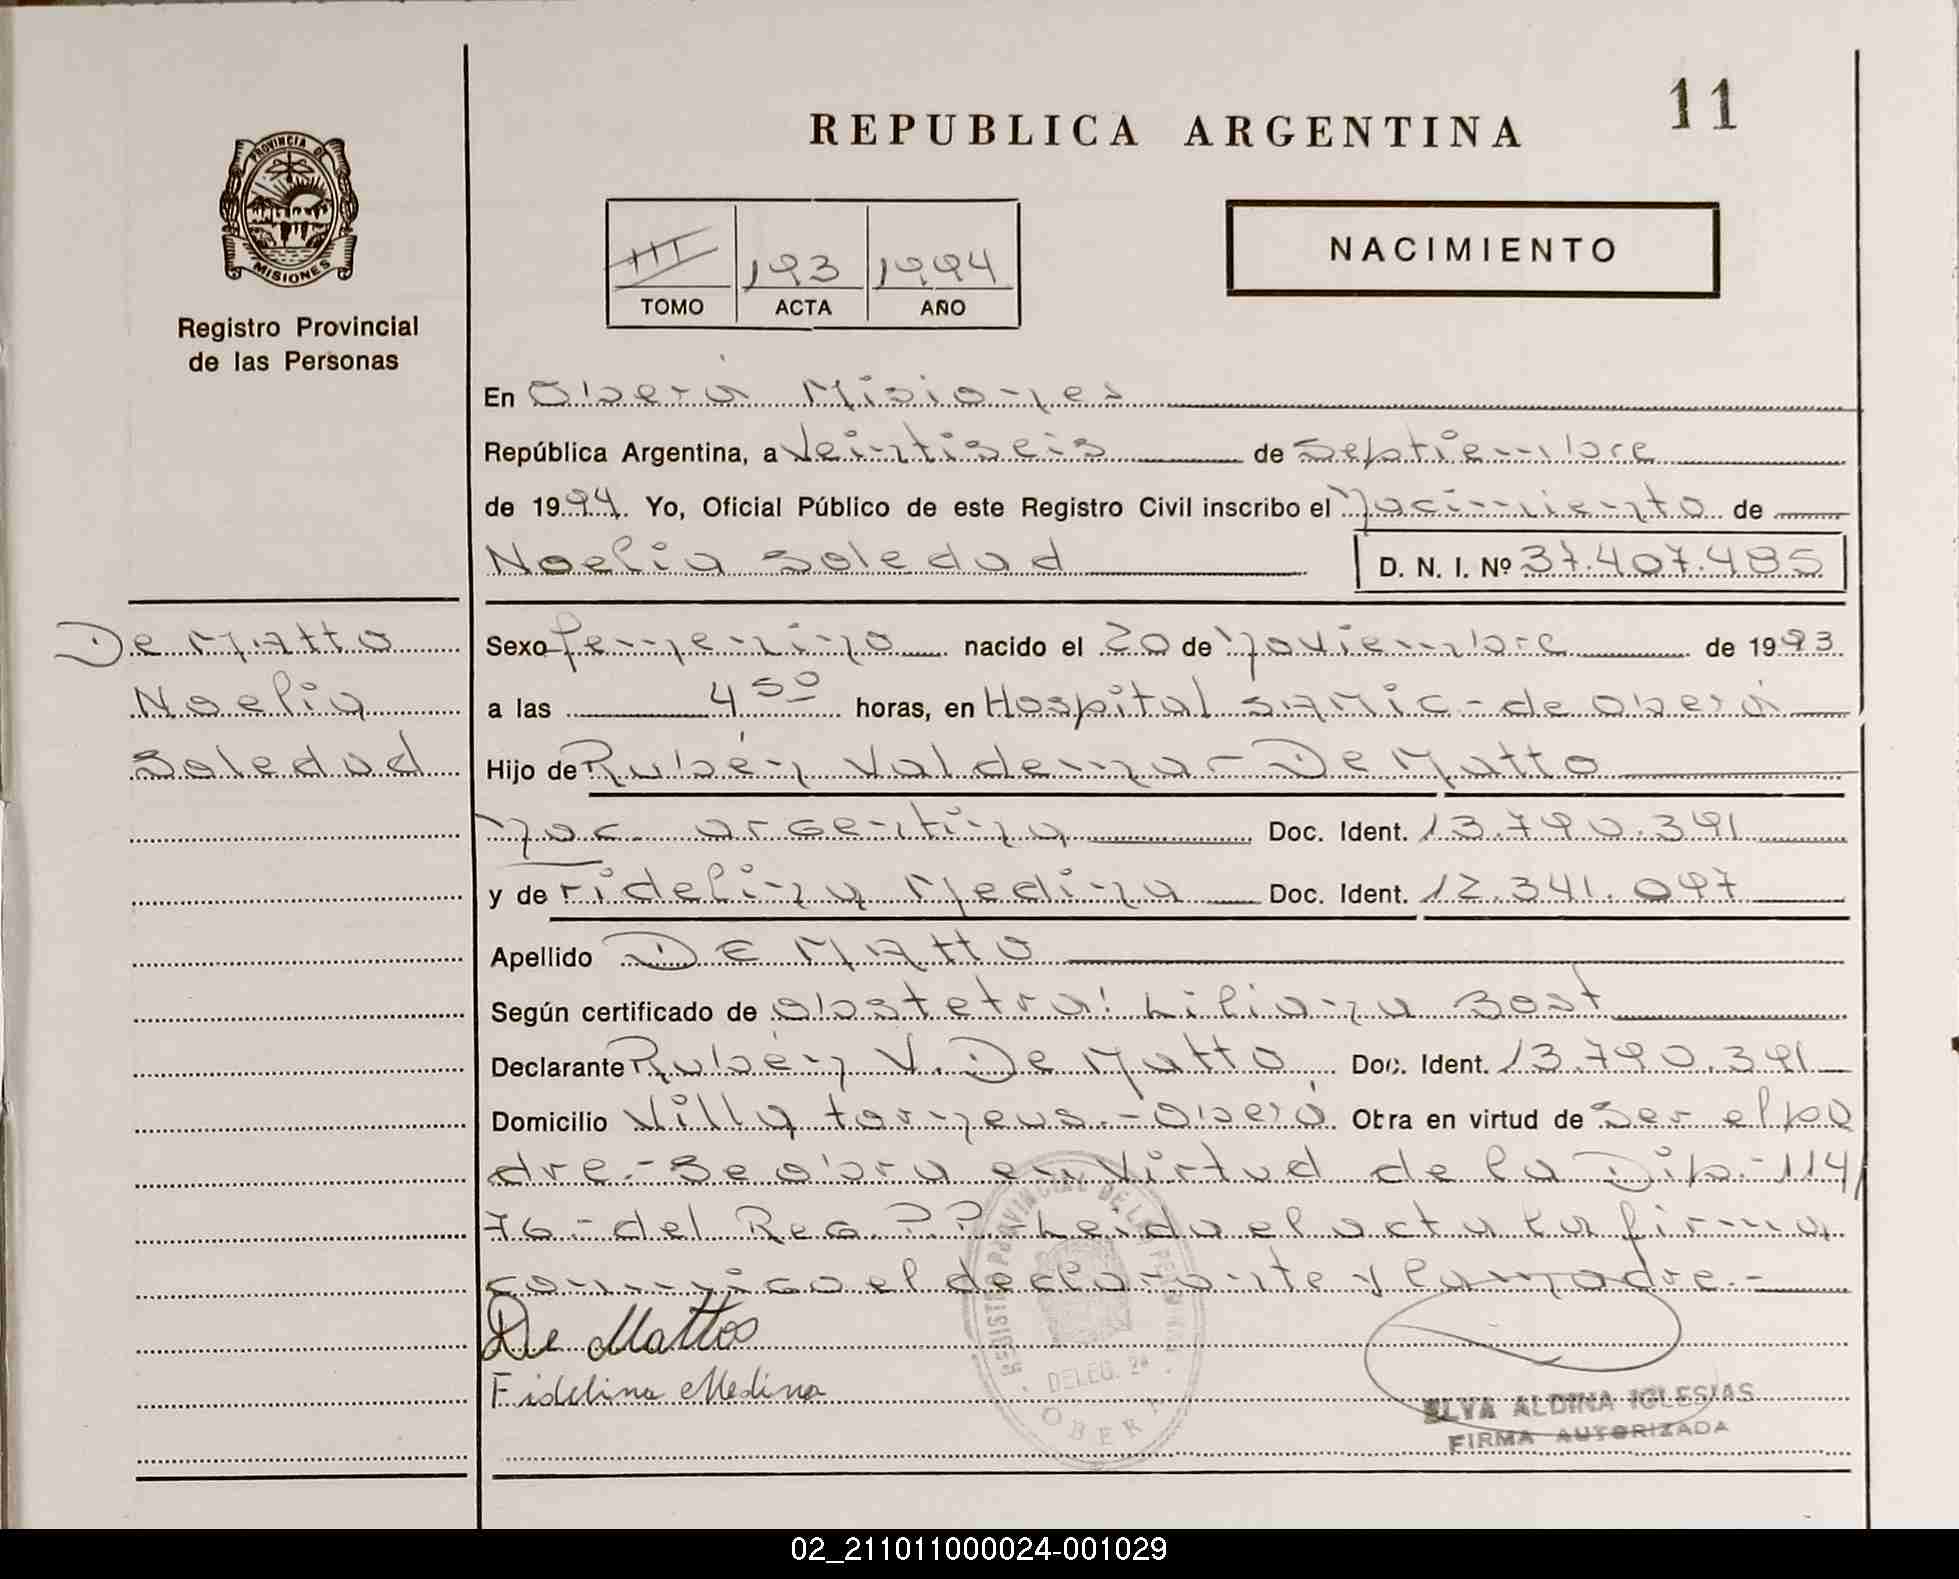 11
REPUBLICA ARGENTINA
PROVINCIA DE
MISIONES
Registro Provincial
de las Personas
III 193 1994
TOMO ACTA AÑO
NACIMIENTO
En Oberá Misiones
República Argentina, a Veintiseis de Septiembre
de 1994. Yo, Oficial Público de este Registro Civil inscribo el Nacimiento de
Noelia Soledad D. N. I. Nº 37.407.485
De Matto
Noelia
Soledad
Sexo femenino nacido el 20 de Noviembre de 1993
a las 4 50 horas, en Hospital SAMIC - de Oberá
Hijo de Rubén Valdemar De Matto
nac. argentina Doc. Ident. 13.790.391
y de Fidelina Medina Doc. Ident. 12.341.097
Apellido DE MATTO
Según certificado de Obstetra: Liliana Bost
Declarante Rubén V. De Matto Doc. Ident. 13.790.391
Domicilio Villa torneus - Oberá Obra en virtud de Ser el pa
dre.- Se obra en virtud de la Disp.- 114/
76 - del Reg. P.P. Leida el acta la firma
conmigo el declarante y la madre.-
De Mattos
Fidelina Medina
REGISTRO PROVINCIAL DE LAS PERSONAS
DELEG. 24
OBERA
ELVA ALDINA IGLESIAS
FIRMA AUTORIZADA
02_211011000024-001029